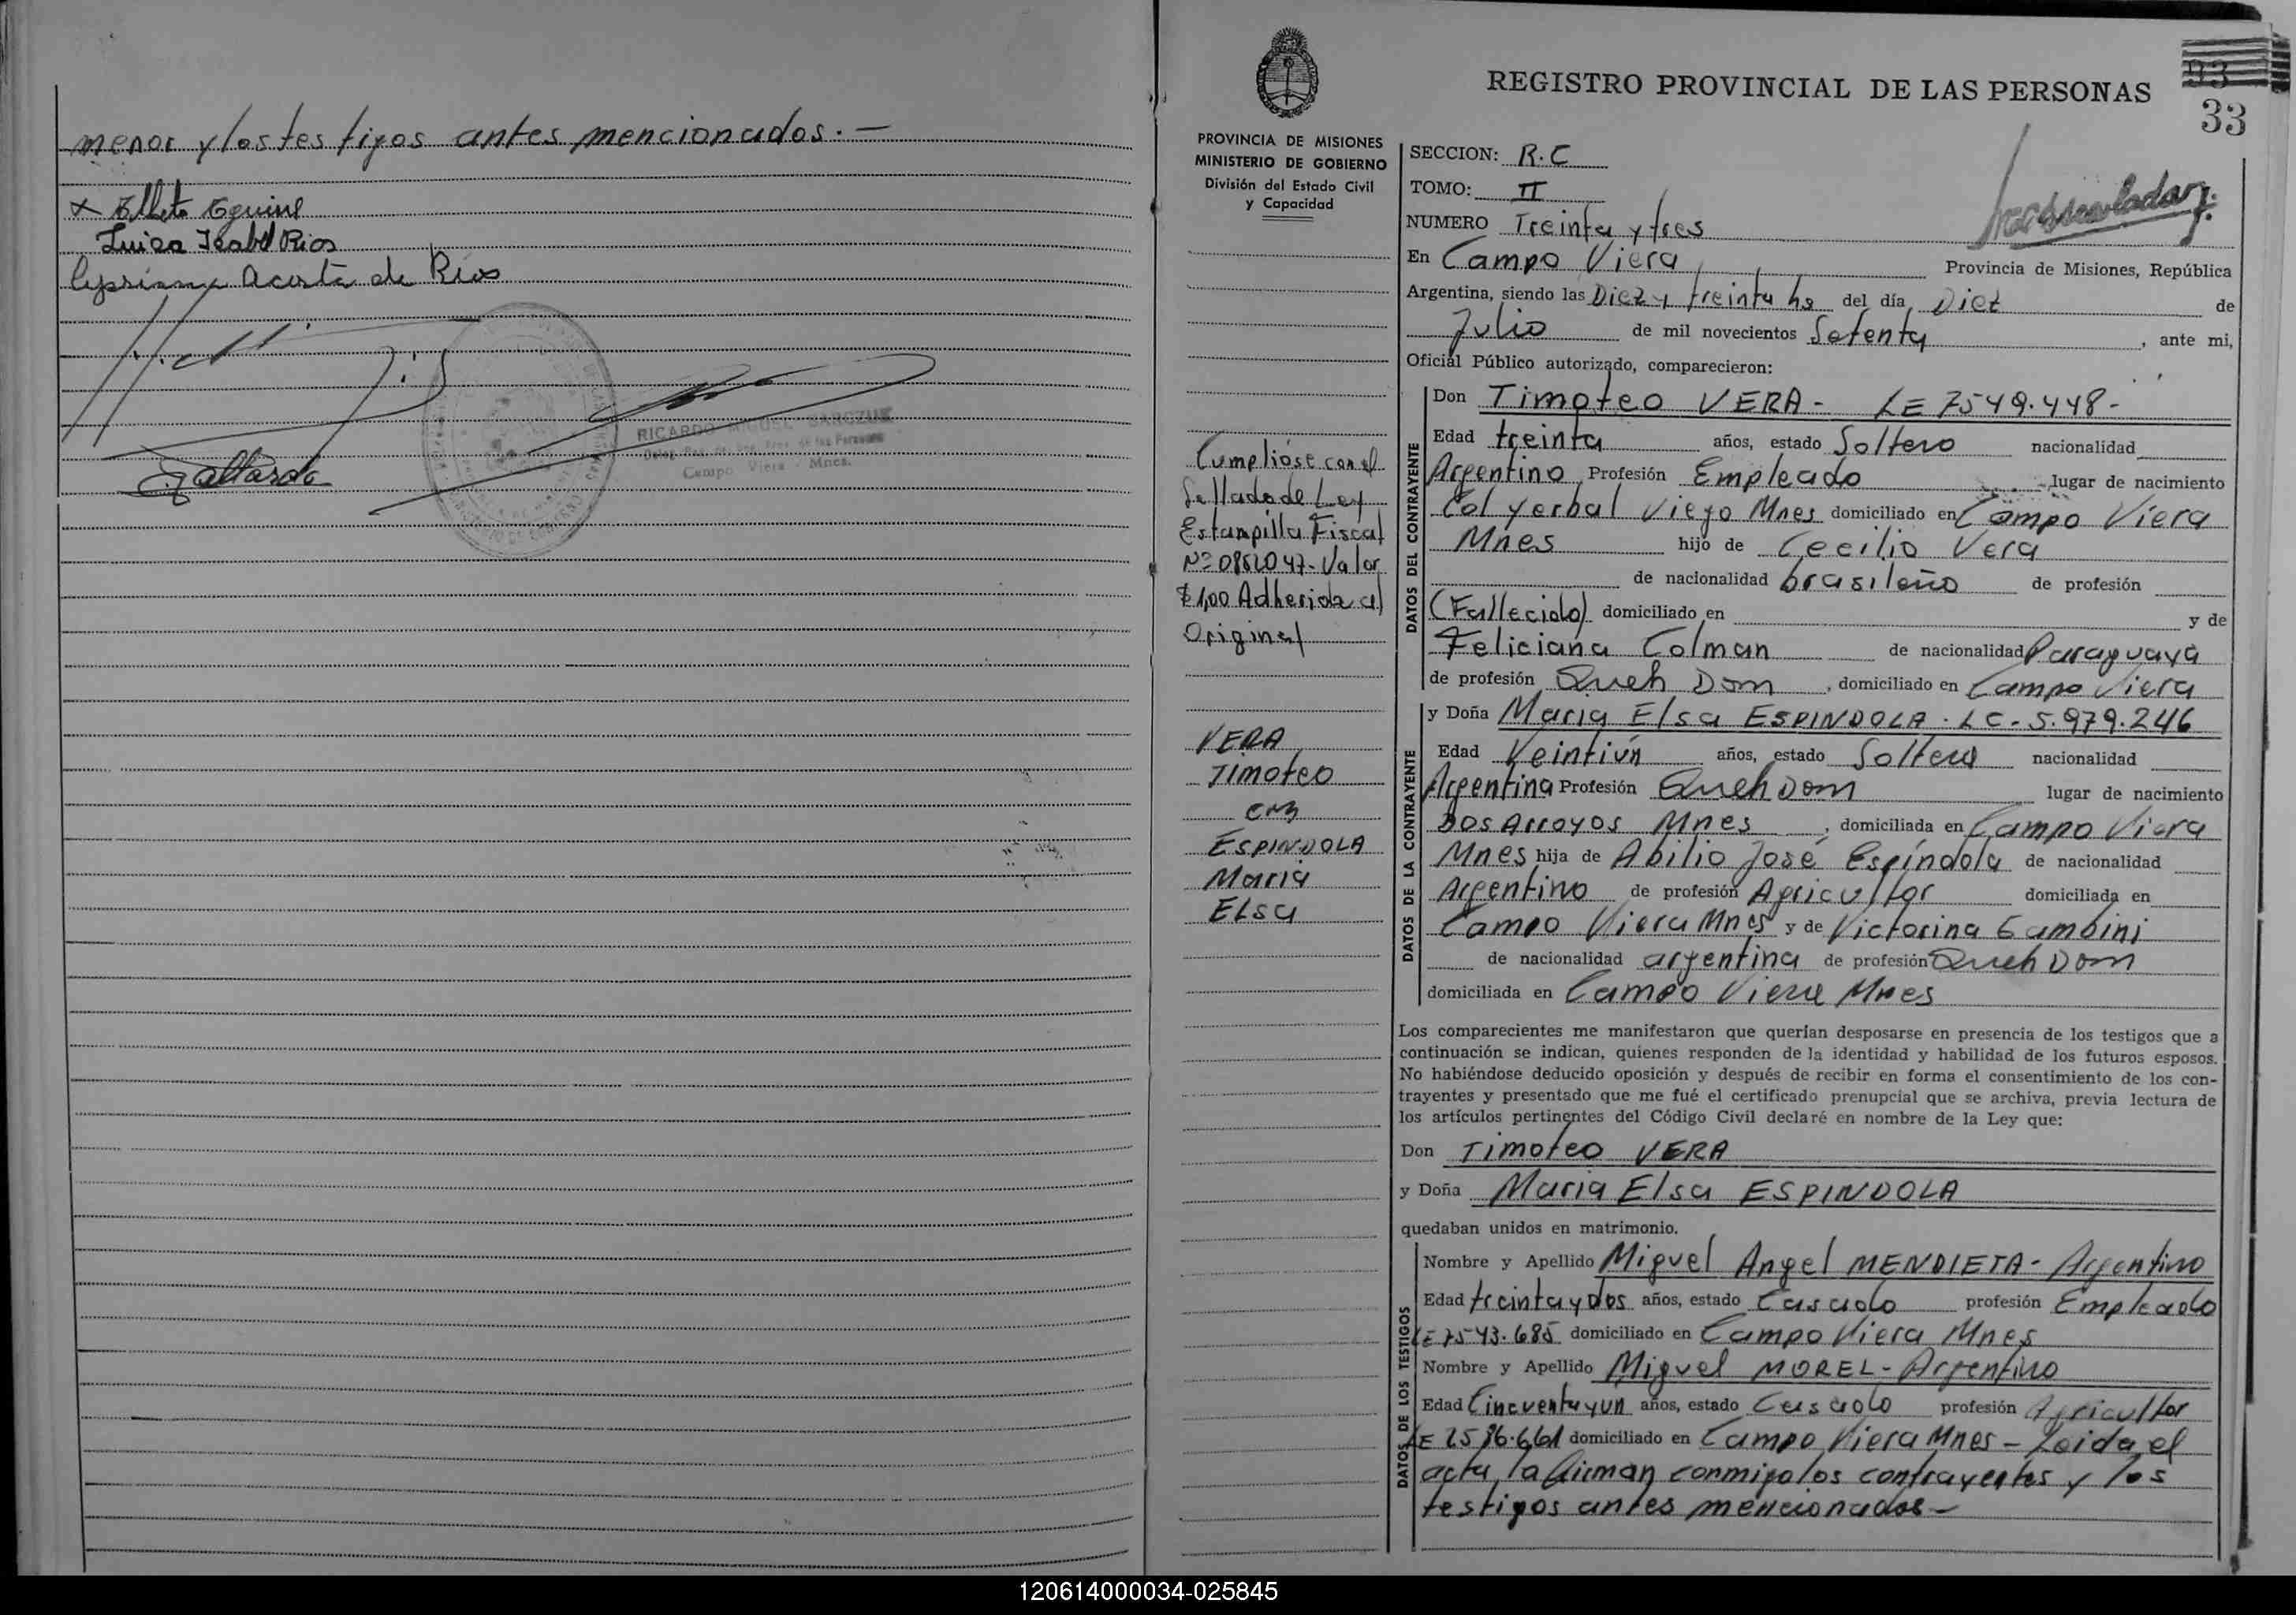 menor y los testigos antes mencionados.-
Luisa Isabel Rios
Acosta de Rios
Gallardo
RICARDO MIGUEL SARCZUK
Campo Viera - Mnes.
REGISTRO PROVINCIAL DE LAS PERSONAS
33
PROVINCIA DE MISIONES
MINISTERIO DE GOBIERNO
División del Estado Civil
y Capacidad
SECCION: R.C
TOMO: II
NUMERO Treinta y tres
En Campo Viera Provincia de Misiones, República
Argentina, siendo las Diez y treinta hs del día Diez de
Julio de mil novecientos Setenta, ante mi,
Oficial Público autorizado, comparecieron:
DATOS DEL CONTRAYENTE
Don Timoteo VERA- LE 7549.448-
Edad treinta años, estado Soltero nacionalidad
Argentino Profesión Empleado lugar de nacimiento
Col Yerbal Viejo Mnes domiciliado en Campo Viera
Mnes hijo de Cecilio Vera
de nacionalidad brasileño de profesión
(Fallecido) domiciliado en y de
Feliciana Colman de nacionalidad Paraguaya
de profesión Queh Dom, domiciliado en Campo Viera
DATOS DE LA CONTRAYENTE
y Doña Maria Elsa ESPINDOLA. LC-5.979.246
Edad Veintiún años, estado Soltera nacionalidad
Argentina Profesión Queh Dom lugar de nacimiento
Dos Arroyos Mnes, domiciliada en Campo Viera
Mnes hija de Abilio José Espíndola de nacionalidad
Argentino de profesión Agricultor domiciliada en
Campo Viera Mnes y de Victorina Gambini
de nacionalidad argentina de profesión Queh Dom
domiciliada en Campo Viera Mnes
Cumplióse con el
Sellado de Ley
Estampilla Fiscal
Valor
$1,00 Adherida al
Original
VERA
Timoteo
con
ESPINDOLA
Maria
ELsa
Los comparecientes me manifestaron que querían desposarse en presencia de los testigos que a
continuación se indican, quienes responden de la identidad y habilidad de los futuros esposos.
No habiéndose deducido oposición y después de recibir en forma el consentimiento de los con-
trayentes y presentado que me fué el certificado prenupcial que se archiva, previa lectura de
los artículos pertinentes del Código Civil declaré en nombre de la Ley que:
Don Timoteo VERA
y Doña Maria Elsa ESPINDOLA
quedaban unidos en matrimonio.
DATOS DE LOS TESTIGOS
Nombre y Apellido Miguel Angel MENDIETA- Argentino
Edad treinta y Dos años, estado Casado profesión Empleado
LE 7543.685 domiciliado en Campo Viera Mnes
Nombre y Apellido Miguel MOREL- Argentino
Edad Cincuenta y un años, estado Casado profesión Agricultor
LE domiciliado en Campo Viera Mnes- Leida el
acta, la firman conmigo los contrayentes y los
testigos antes mencionados-
120614000034-025845